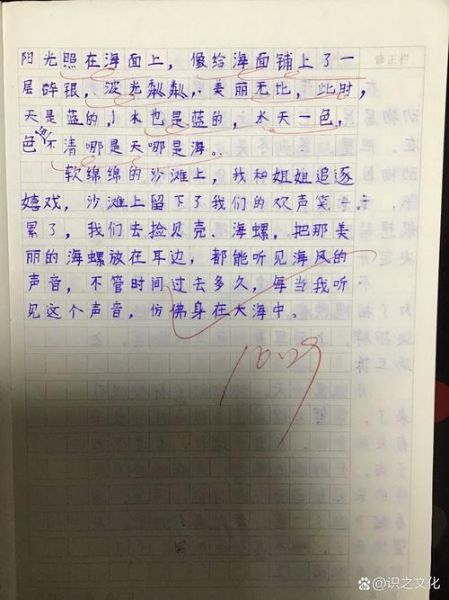 阳光照在海面上，像给海面铺上了一
修正栏
层碎银，波光粼粼，美丽无比，此时，
天是蓝的，水也是蓝的，水天一色，
不清哪是天哪是海。
软绵绵的沙滩上，我和姐姐追逐
嬉戏，沙滩上留下了我们的欢声笑
累了，我们去捡贝壳、海螺，把那美
丽的海螺放在耳边，都能听见海风的
声音，不管时间过去多久，每当我听
见这个声音，仿佛身在大海中。
10.29
百度 @识之文化